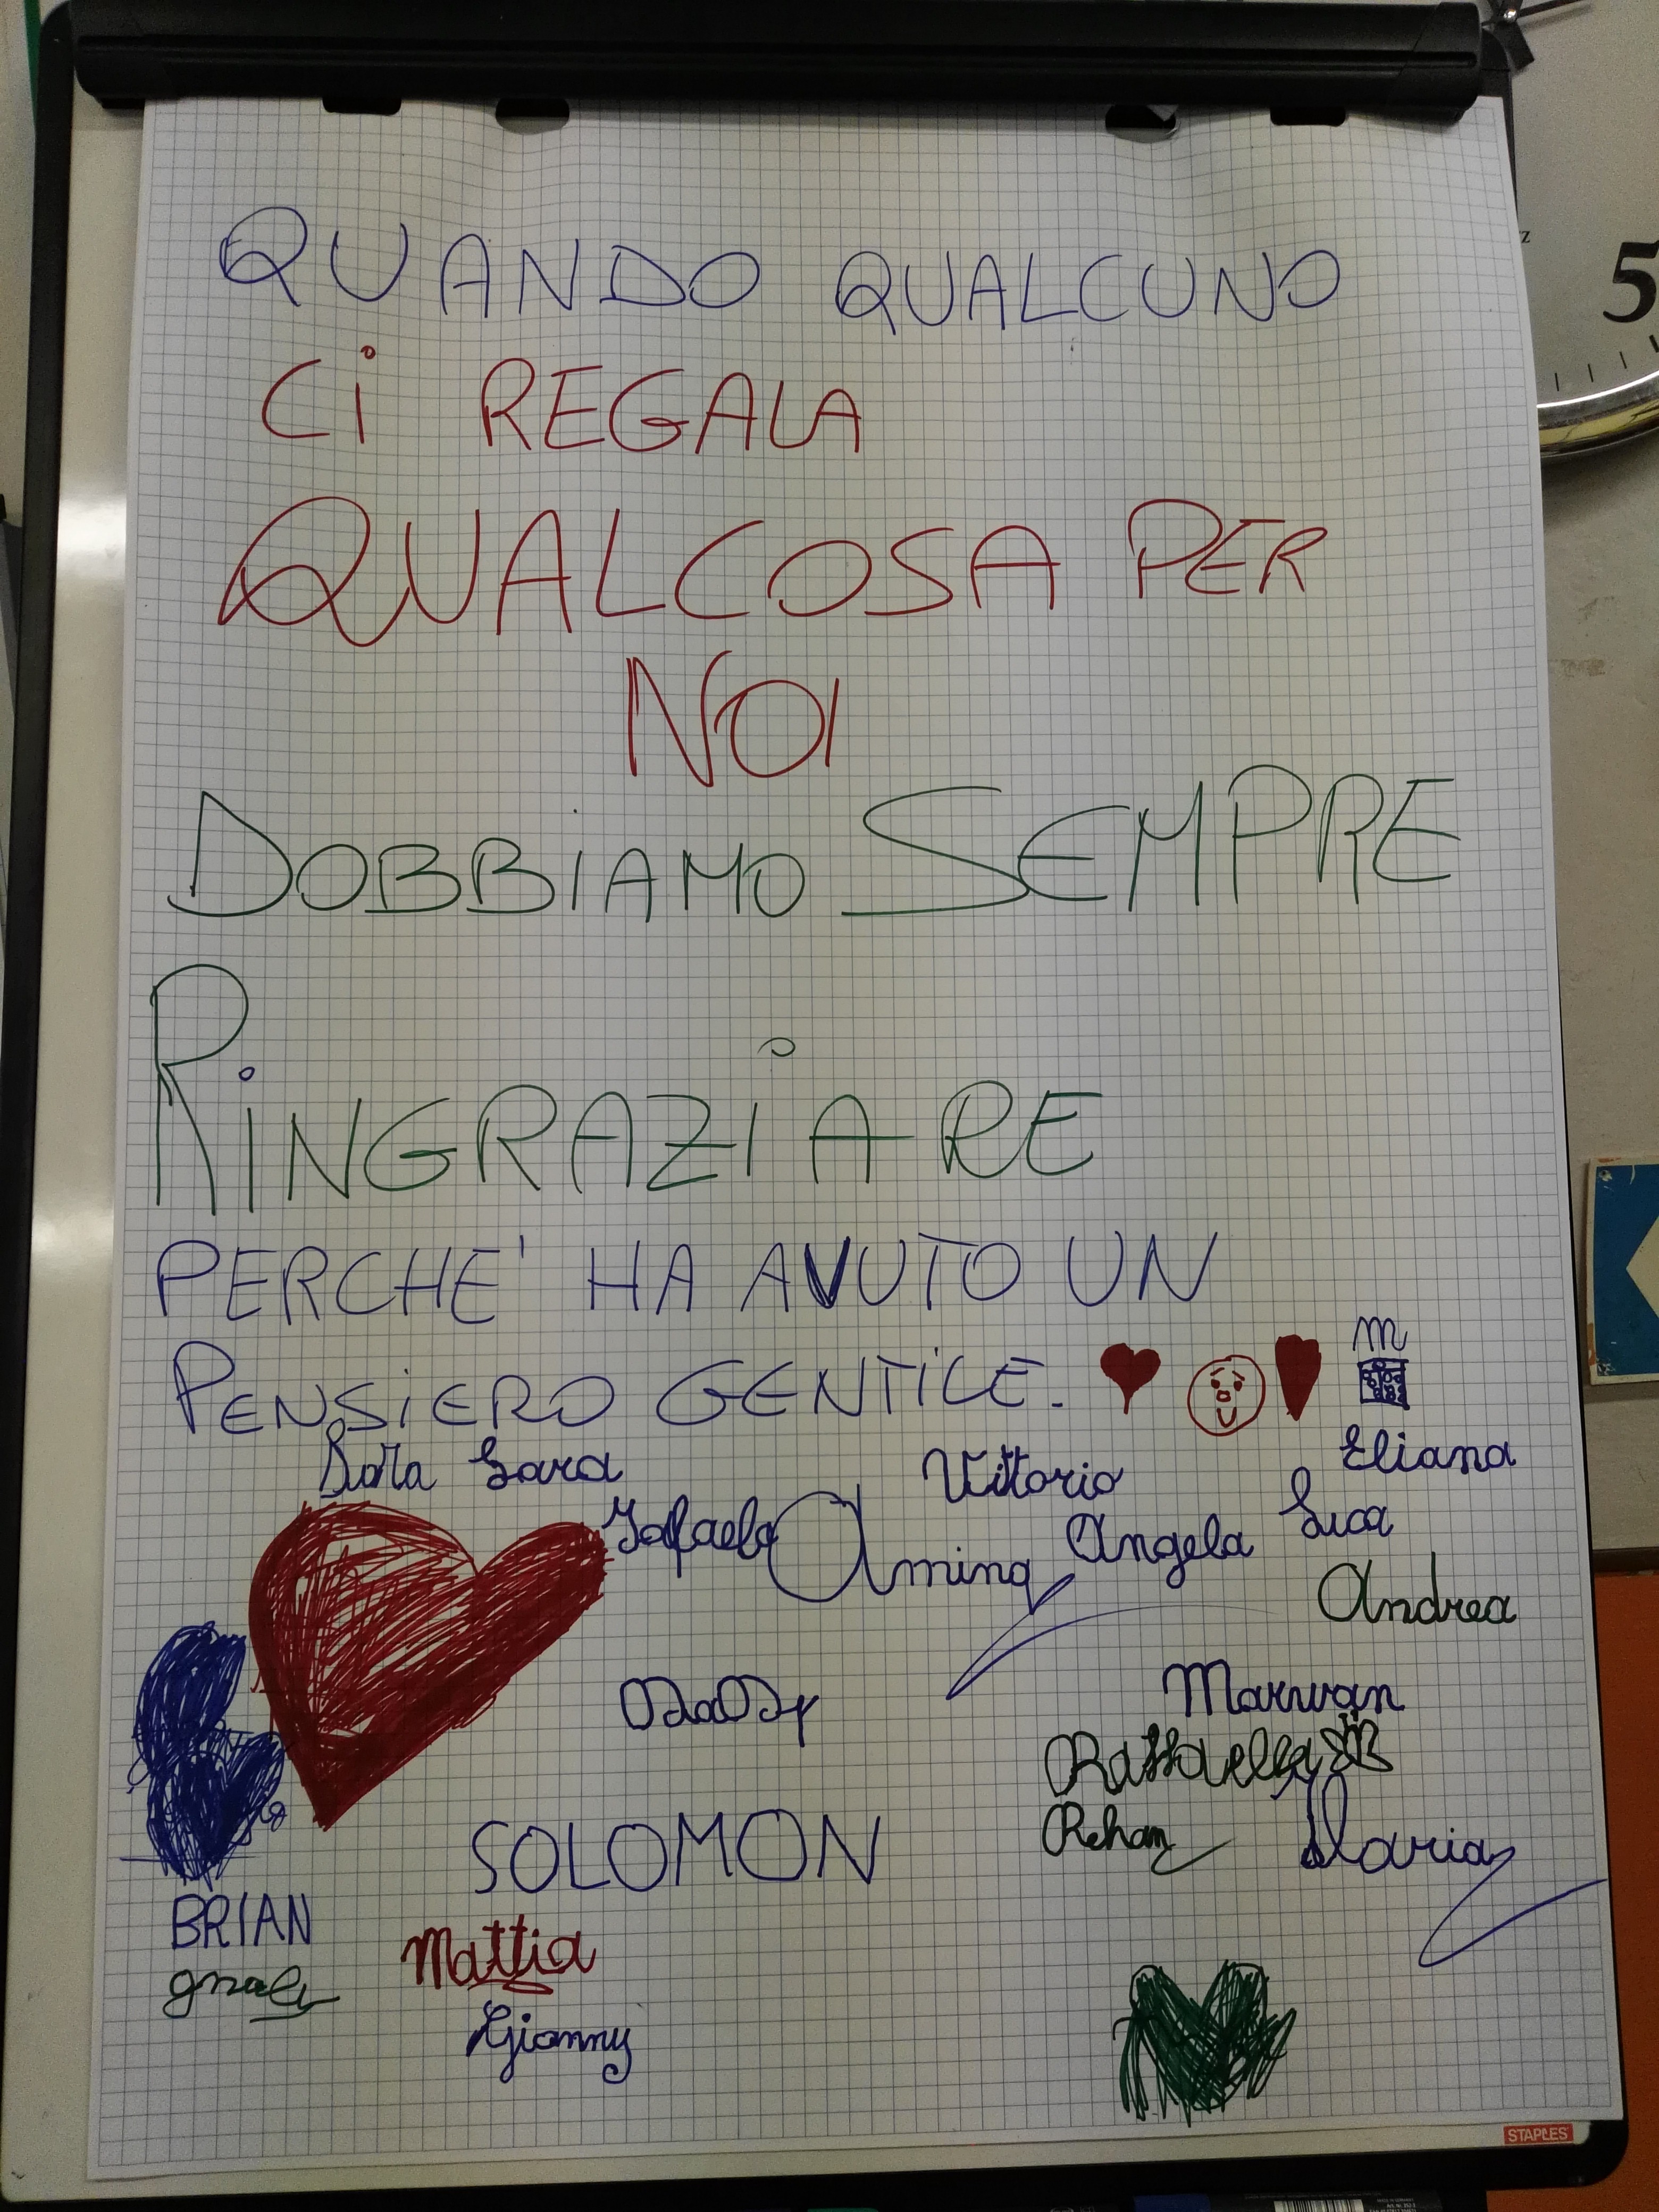 QUANDO QUALCUNO
Ci REGALA
QUALCOSA PER
NOI
DOBBiAMO SEMPRE
RiNGRAZiARE
PERCHE' HA AVUTO UN
PENSiERO GENTiLE.
m
Sara
Vittorio
Eliana
Amina
Angela
Luca
Andrea
Marwan
Raffaella
SOLOMON
Rehan
Ilaria
BRIAN
Mattia
Gianny
5
STAPLES